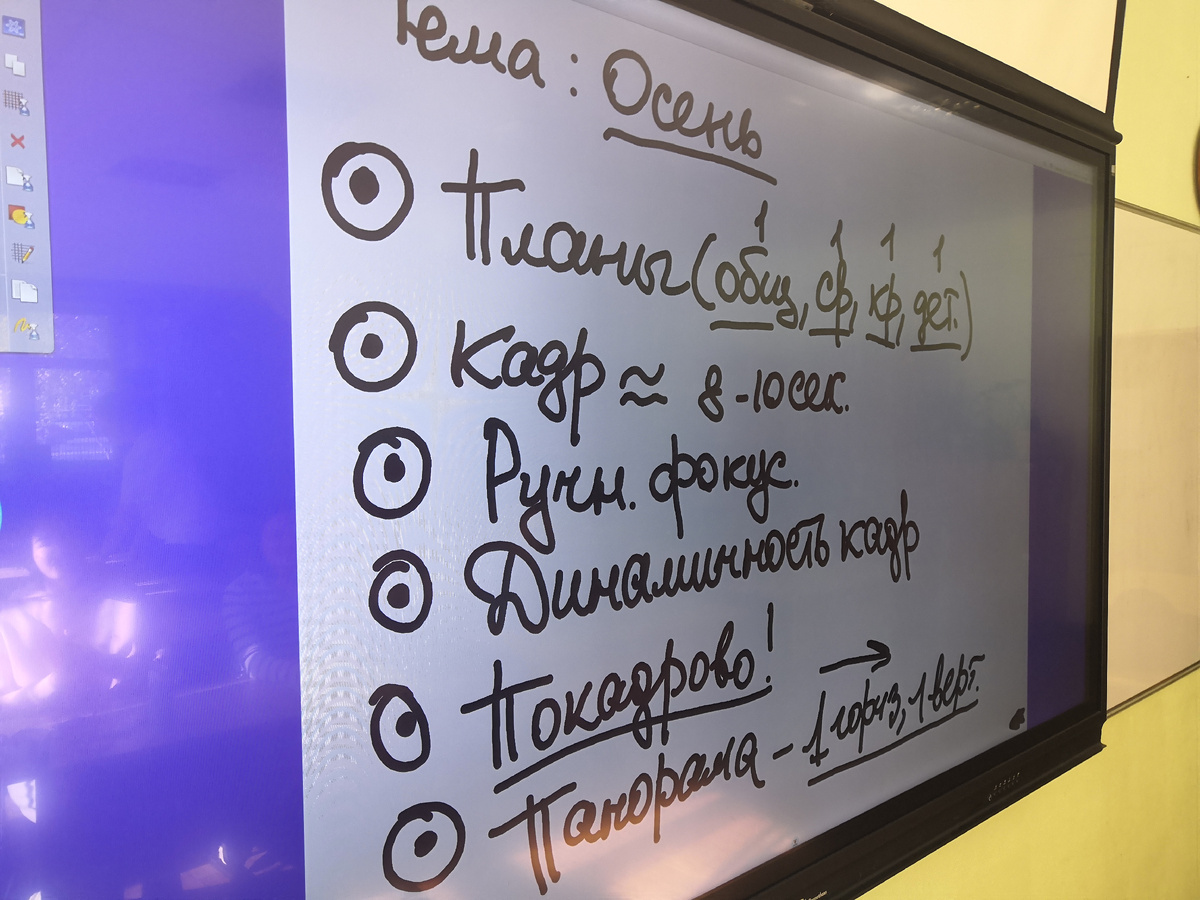 Тема : Осень
1 1 1 1
Планы (общ, ср, кр, дет.)
Кадр ≈ 8-10 сек.
Ручн. фокус.
Динамичность кадр
Покадрово!
Панорама - 1 гориз, 1 верт.